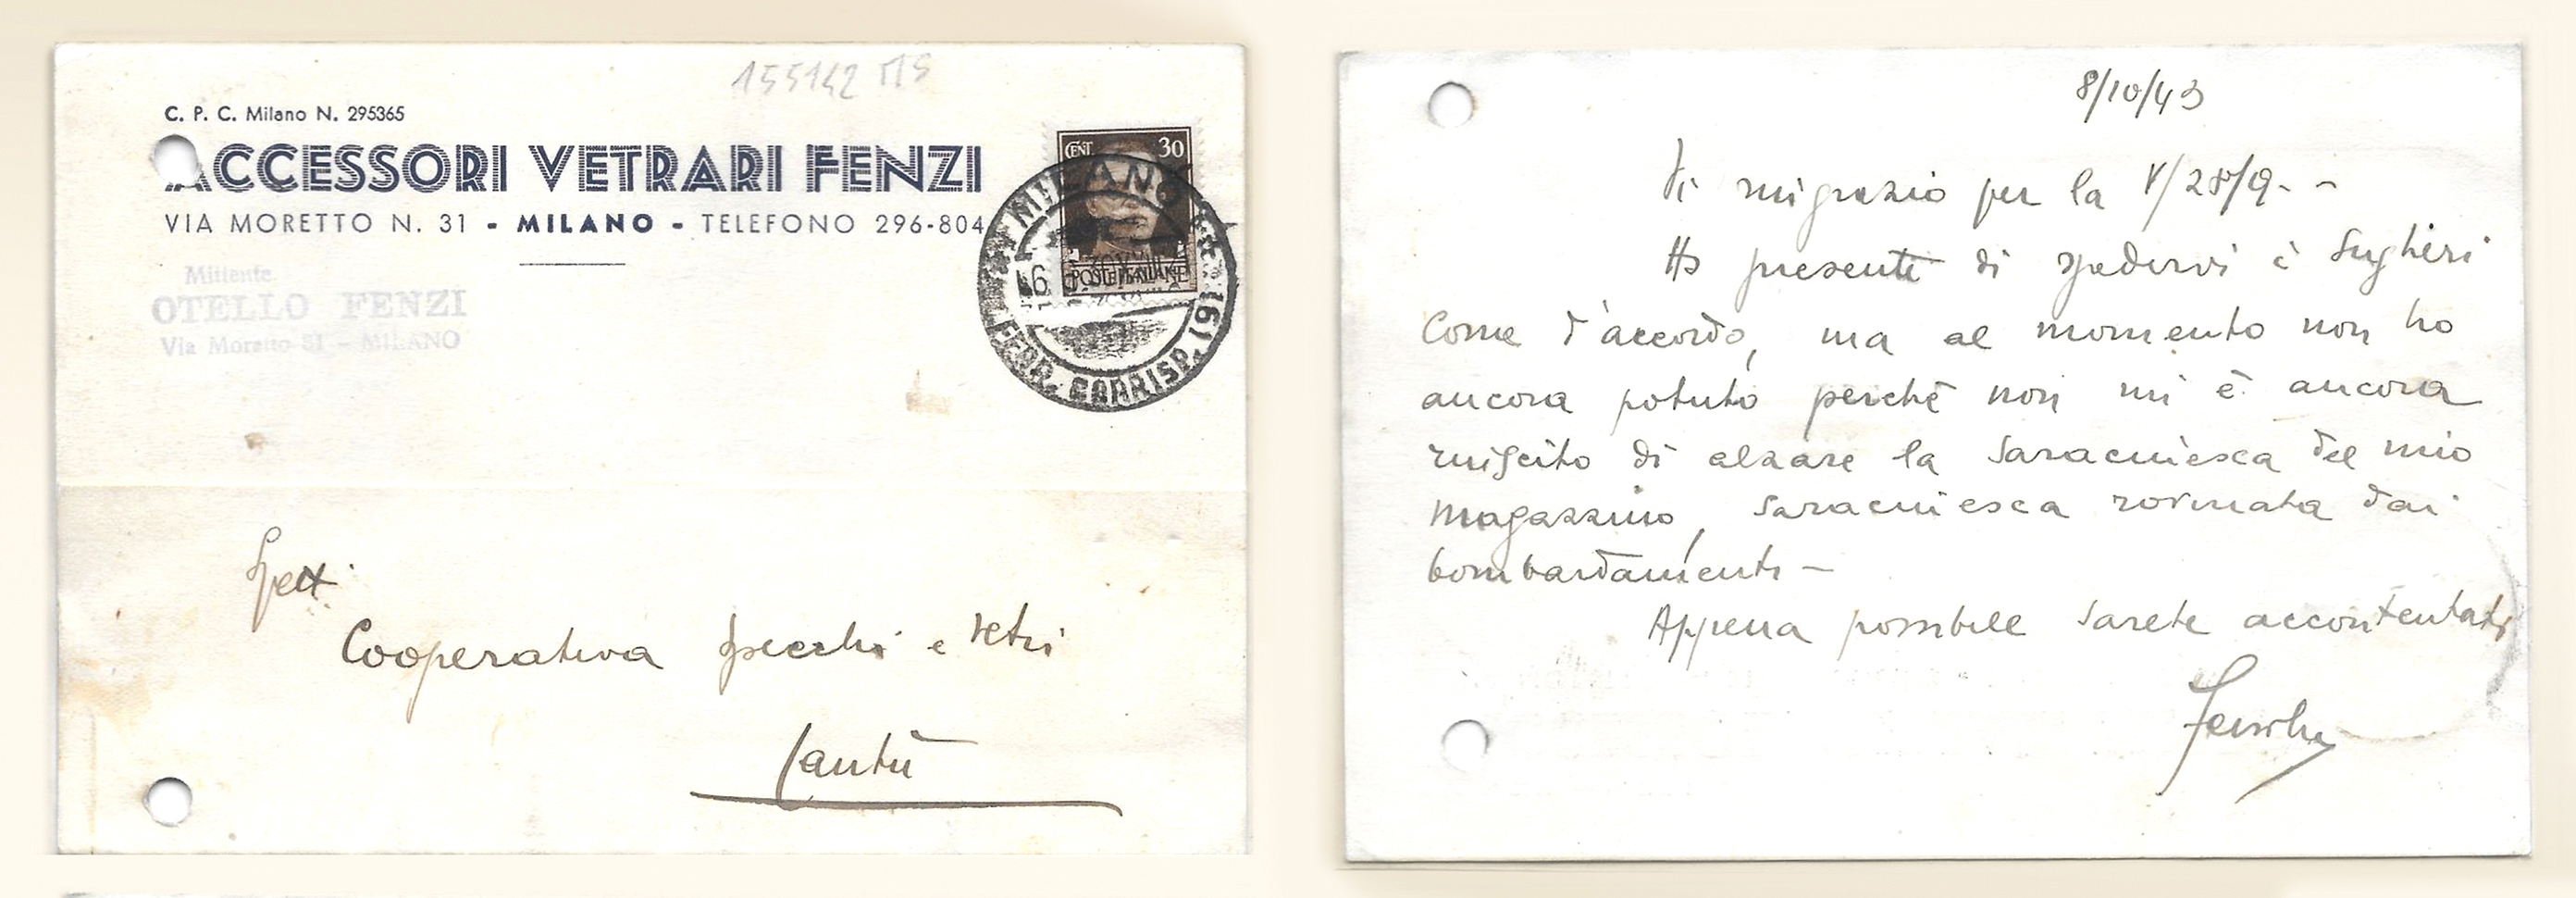 155142 MS
C. P. C. Milano N. 295365
ACCESSORI VETRARI FENZI
VIA MORETTO N. 31 - MILANO - TELEFONO 296-804
CENT 30
POSTE ITALIANE
MILANO
FERR. CORRISP. (61)
Mittente
OTELLO FENZI
Via Moretto 31 - MILANO
Spett.
Cooperativa Specchi e Vetri
Cantù
8/10/43
Vi ringrazio per la V/28/9. -
Ho presente di spedirvi i Sugheri
come d'accordo, ma al momento non ho
ancora potuto perchè non mi è ancora
riuscito di alzare la saracinesca del mio
magazzino, saracinesca rovinata dai
bombardamenti -
Appena possibile sarete accontentati